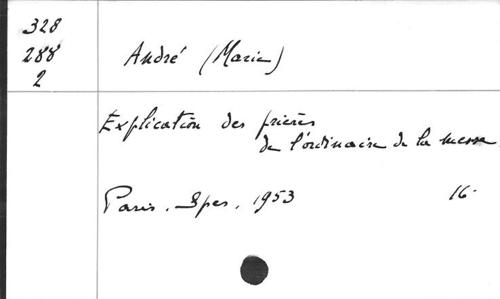 328
288
2
André (Marie)
Explication des prières
de l'ordinaire de la messe.
Paris. Spes. 1953 16°